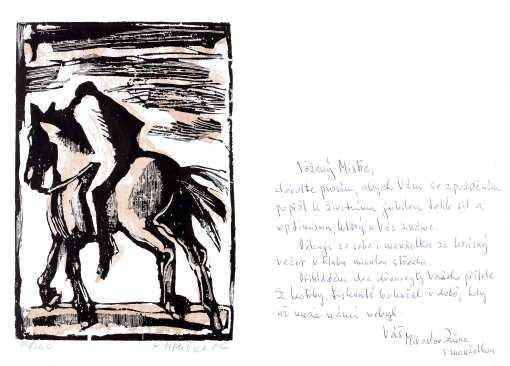 Vážený Mistře,
dovolte prosím, abych Vám se zpožděním
popřál k životnímu jubileu tolik sil a
optimismu, který u Vás známe.
Děkuji za sebe i manželku za krásný
večer v klubu minulou středu.
Přikládám dva dřevoryty Vašeho přítele
Z. Kotrby, tištěné bohužel v době, kdy
už mezi námi nebyl.
Váš Miroslav
s manželkou